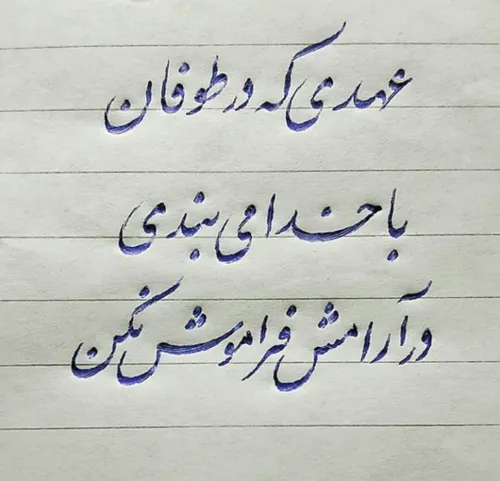 عهدی که در طوفان
با خدا می بندی
در آرامش فراموش نکن